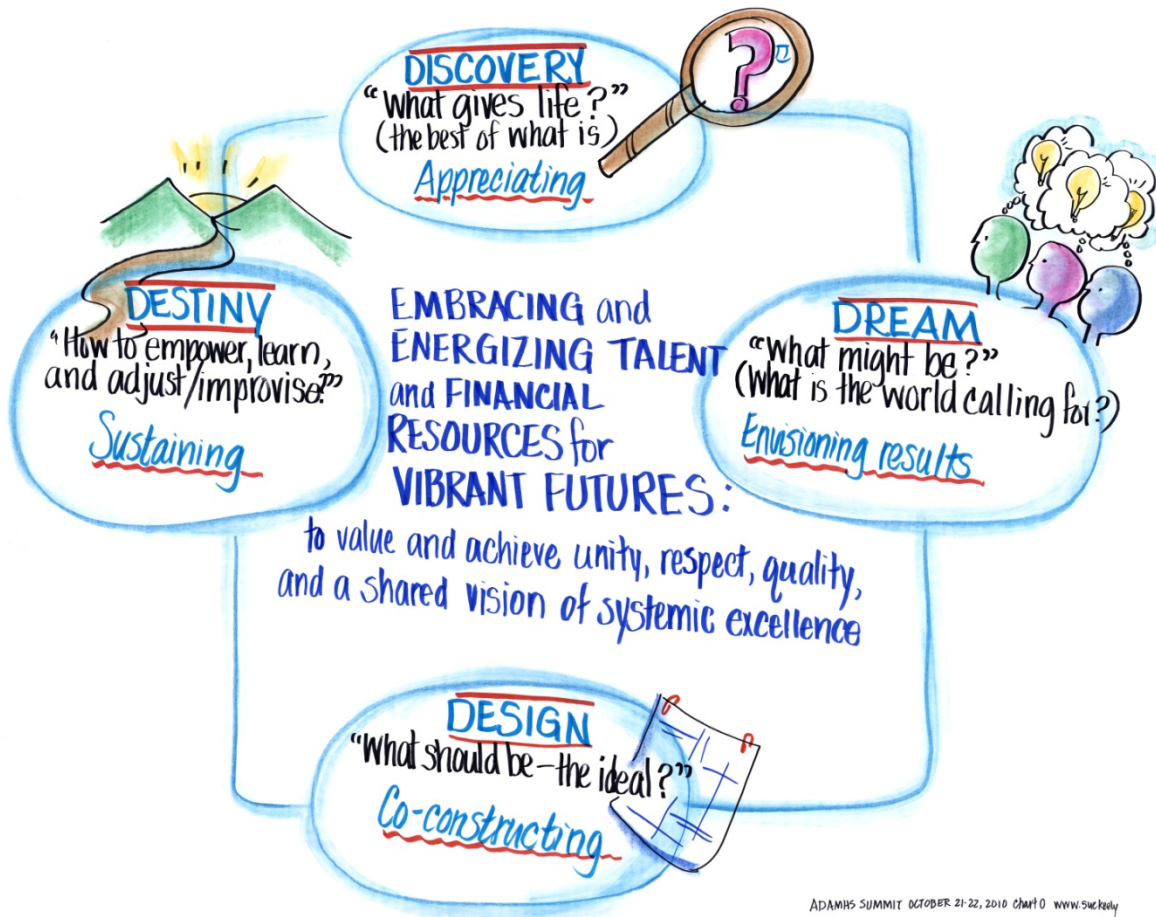 DISCOVERY
"What gives life?"
(the best of what is)
Appreciating
?
DESTINY
"How to empower, learn,
and adjust/improvise?"
Sustaining
EMBRACING and
ENERGIZING TALENT
and FINANCIAL
RESOURCES for
VIBRANT FUTURES:
to value and achieve unity, respect, quality,
and a shared vision of systemic excellence
DREAM
"What might be?"
(What is the world calling for?)
Envisioning results
DESIGN
"What should be-the ideal?"
Co-constructing
ADAMHS SUMMIT OCTOBER 21-22, 2010 Chart 0